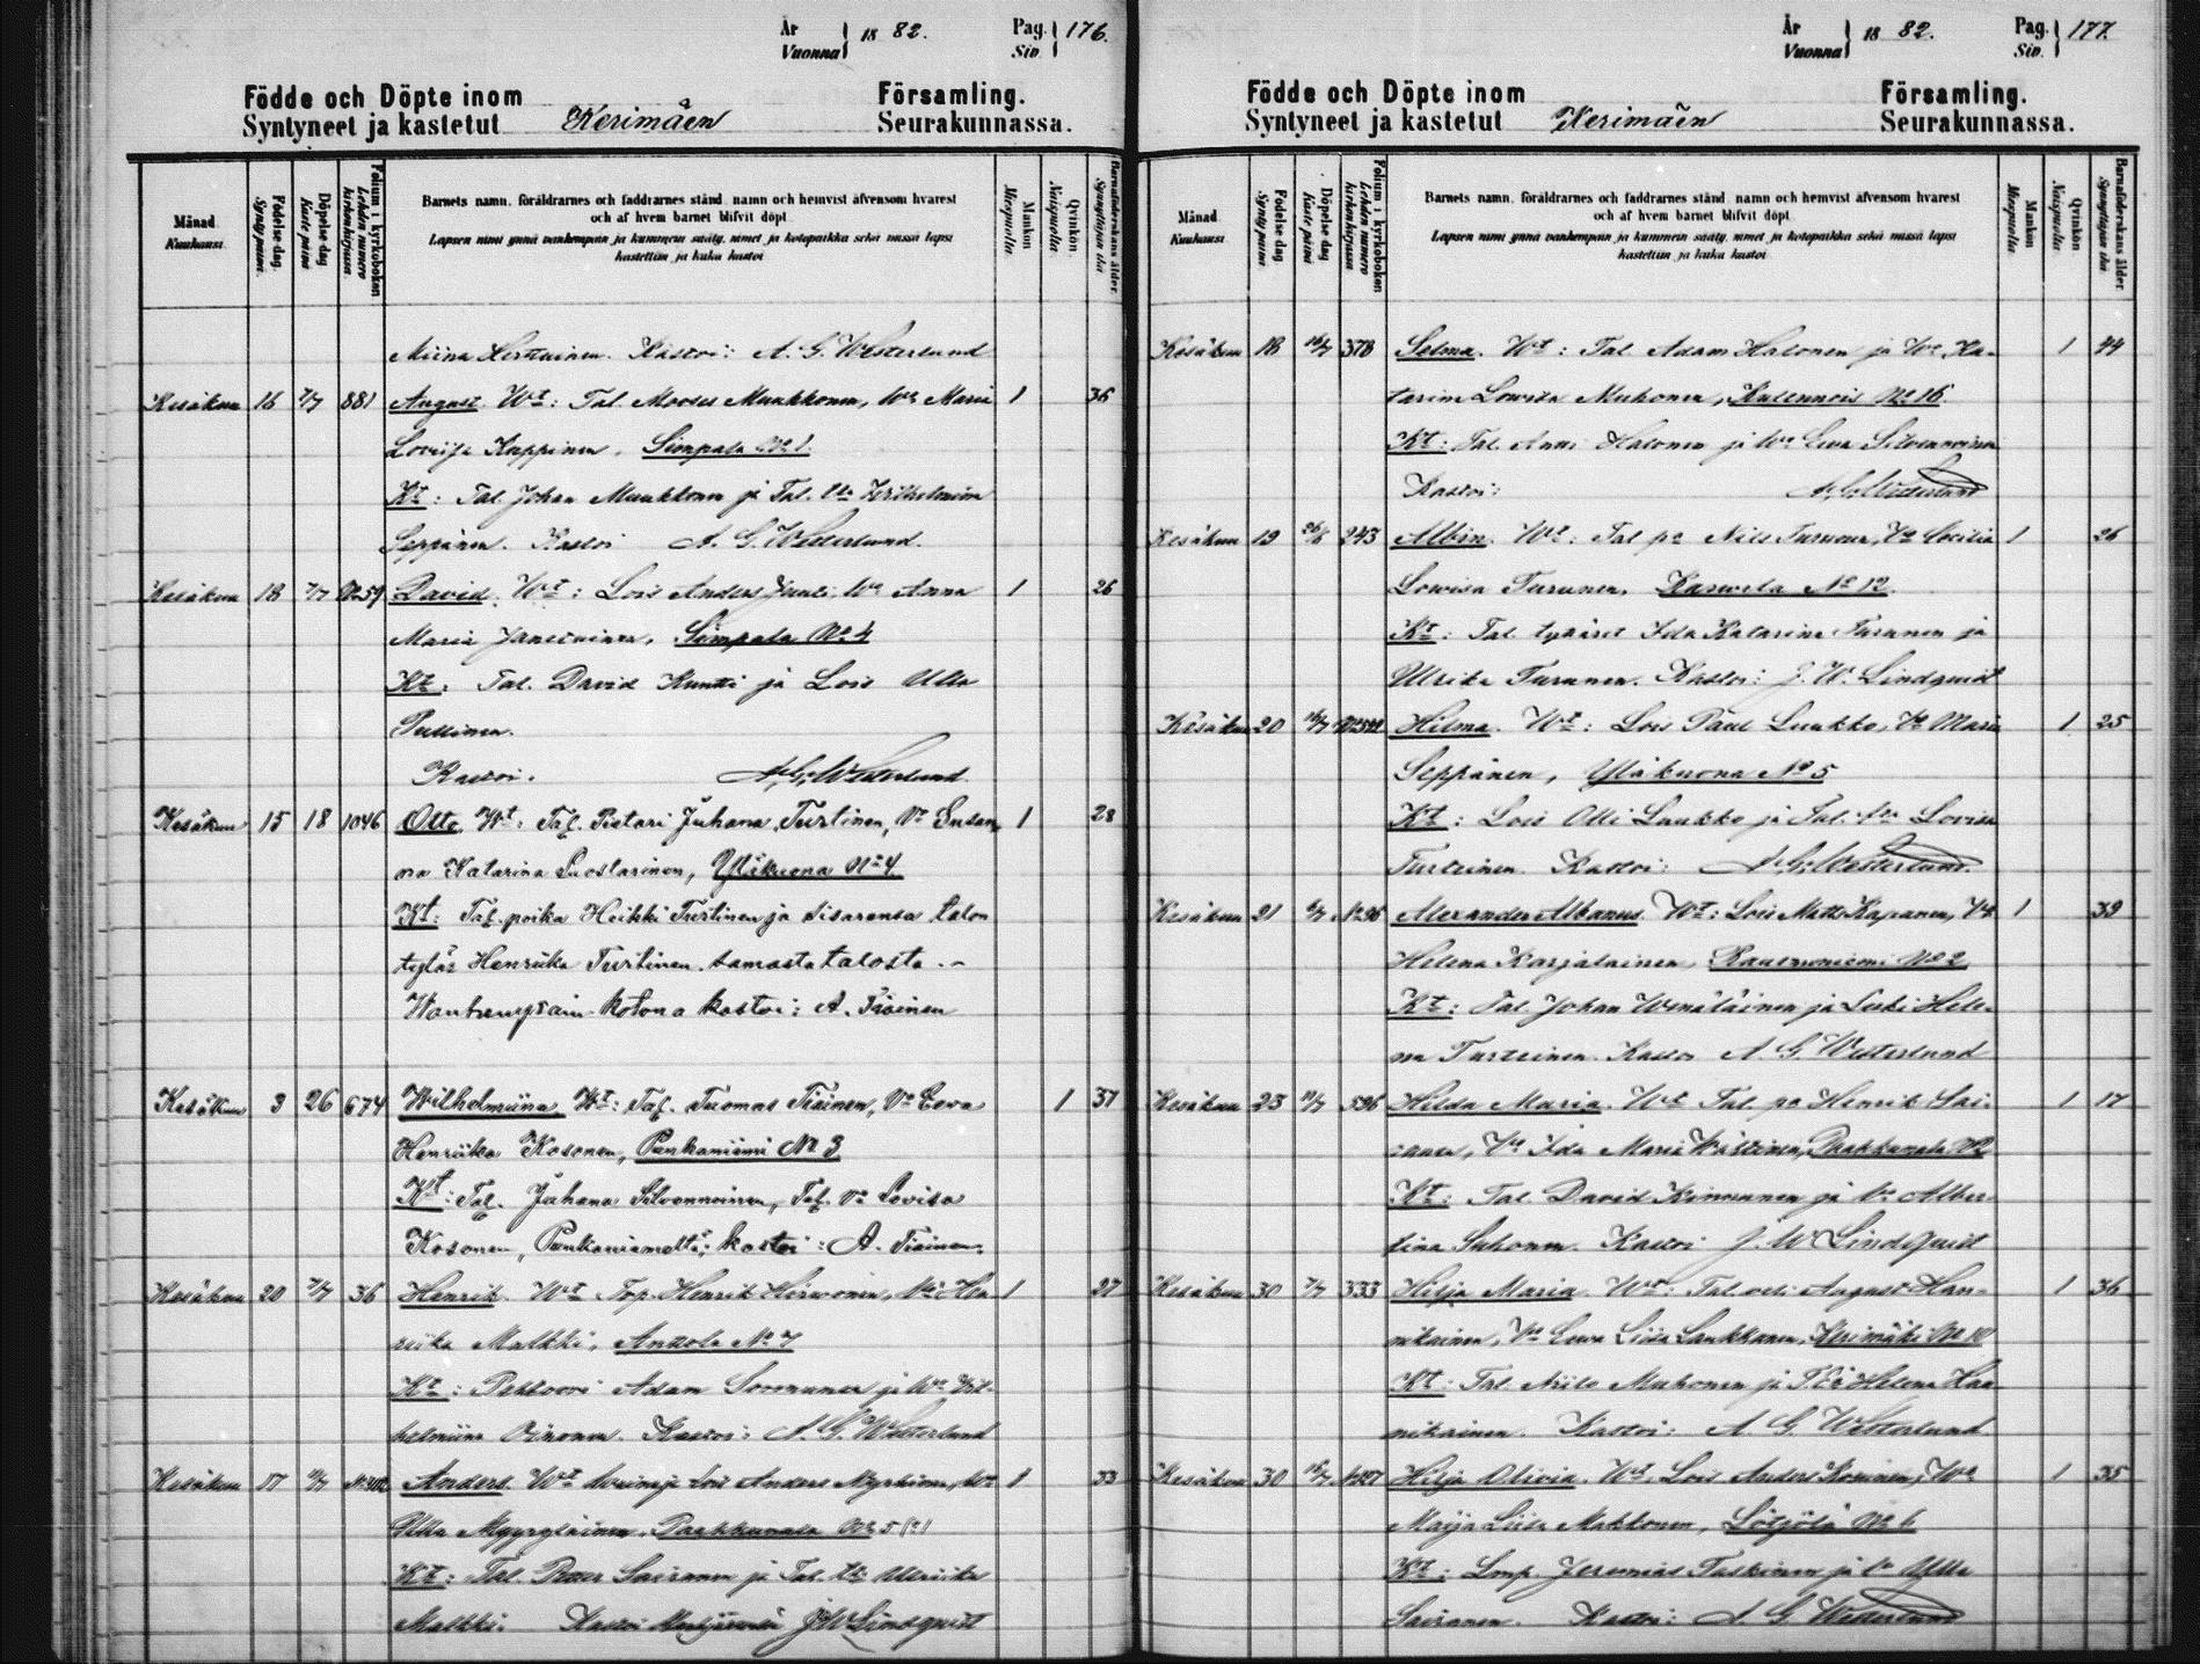 År Vuonna } 18 82. Pag. Siv. } 176.
Födde och Döpte inom Församling.
Syntyneet ja kastetut Kerimäen Seurakunnassa.
Månad Kuukausi
Födelsedag. Syntypäivä.
Döpelsedag Kastepäivä
Folium i kyrkoboken Lehden numero kirkonkirjassa
Barnets namn, föräldrarnes och faddrarnes stånd, namn och hemvist äfvensom hvarest
och af hvem barnet blifvit döpt
Lapsen nimi ynnä vanhempain ja kummein sääty, nimet ja kotopaikka sekä missä lapsi
kastettiin ja kuka kastoi
Mankön Miespuolia
Qvinkön. Naispuolia
Barnaföderskans ålder. Synnyttäjän ikä
Miina Kastoi: A. G. Westerlund
Kesäkuu 16 2/7 881 August. Wt: Tal. Mooses Muukkonen, Wo Maria 1 36
Lovisa Kuppinen, Simpala No 1.
Kt: Tal. Johan Muukkonen ja Tal. Wilhelmiina
Seppänen. Kastoi A. G. Westerlund.
Kesäkuu 18 2/7 No 59 David. Wt: Lois Anders Juuti, Wo Anna 1 26
Maria Janstuinen, Simpala No 4
Kt: Tal. David Kuntti ja Lois Ulla
Pullinen.
Kastoi. A. G. Westerlund
Kesäkuu 15 18 1046 Otto. Wt: Tal. Pietari Juhana Turtinen, Vo Susan 1 28
na Katarina Suostarinen, Yläkuona No 4
Kt: Tal. poika Heikki Turtinen ja sisarensa talon
tytär Henriika Turtinen samasta talosta.-
Wanhempain kotona kastoi: A. Tiainen
Kesäkuu 3 26 674 Wilhelmiina Wt: Tal. Tuomas Tiainen, Vo Eeva 1 31
Henriika Kosonen, Punkaniemi No 3
Kt: Tal. Juhana Silvennoinen, Tal. Vo Lovisa
Kosonen, Punkaniemeltä; kastoi: A. Tiainen.
Kesäkuu 20 2/7 36 Henrik. Wt Henrik Hirvonen, Vo Hen 1 27
riika Malkki, Anttola No 7
Kt: Adam ja Wo Wil-
helmiina Oinonen. Kastoi: A. G. Westerlund
Kesäkuu 17 Anders. Wt Lois Anders Wo 1 33
Ulla Myyryläinen, Paakkunala No 5
Kt: Tal. Sairanen ja Tal. Ulriika
Malkki. Kastoi J W Lindquist
År Vuonna } 18 82. Pag. Siv. } 177.
Födde och Döpte inom Församling.
Syntyneet ja kastetut Kerimäen Seurakunnassa.
Månad Kuukausi
Födelsedag Syntypäivä
Döpelsedag Kastepäivä
Folium i kyrkoboken Lehden numero kirkonkirjassa
Barnets namn, föräldrarnes och faddrarnes stånd, namn och hemvist äfvensom hvarest
och af hvem barnet blifvit döpt
Lapsen nimi ynnä vanhempain ja kummein sääty, nimet ja kotopaikka sekä missä lapsi
kastettiin ja kuka kastoi
Mankön Miespuolia
Qvinkön Naispuolia
Barnaföderskans ålder Synnyttäjän ikä
Kesäkuu 18 16/7 378 Selma. Wt: Tal. Adam Halonen ja Wo Ka- 1 44
tarina Lowisa Muhonen, Kulennois No 16.
Kt: Tal. Antti Halonen ja Wo Eeva Silvennoinen
Kastoi: A. G. Westerlund
Kesäkuu 19 26/6 243 Albin. Wt: Tal. po Nils Turunen, Vo Cecilia 1 26
Lowisa Turunen, Karvila No 12.
Kt: Tal. tyttäret Ida Katarina Turunen ja
Ulrika Turunen. Kastoi: J. W. Lindquist
Kesäkuu 20 16/7 Hilma. Wt: Lois Paul Luukko, Vo Maria 1 25
Seppänen, Yläkuona No 5
Kt: Lois Olli Luukko ja Tal. Lovisa
Turtinen. Kastoi: A. G. Westerlund.
Kesäkuu 21 No 96 Alexander Albanus. Wt: Lois Matts Kapanen, Vo 1 39
Helena Karjalainen, Rauvanniemi No 2
Kt: Tal. Johan Wenäläinen ja Leski Hele-
na Turtinen. Kastoi A. G. Westerlund
Kesäkuu 23 596 Hilda Maria. Wt Tal. po Henrik Sai- 1 17
ranen, Vo Ida Maria Paakkunala No 2
Kt: Tal. David Kinnunen ja Vo Alber-
tina Suhonen. Kastoi J. W Lindquist
Kesäkuu 30 2/7 333 Hilja Maria. Wt: Tal. veli August Han- 1 36
nikainen, Vo Eeva Liisa Laukkanen, Kerimäki No 10
Kt: Tal. Niilo Muhonen ja Helena Han
nikainen. Kastoi: A. G. Westerlund
Kesäkuu 30 16/7 Hilja Olivia. Wt: Lois Anders Kosonen, Wo 1 35
Maija Liisa Makkonen, Lötjölä No 6
Kt: Lmp. Jeremias Taskinen ja Ulla
Sairanen. Kastoi: A. G. Westerlund